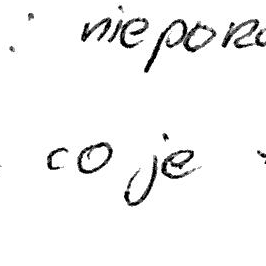 niepora
co je